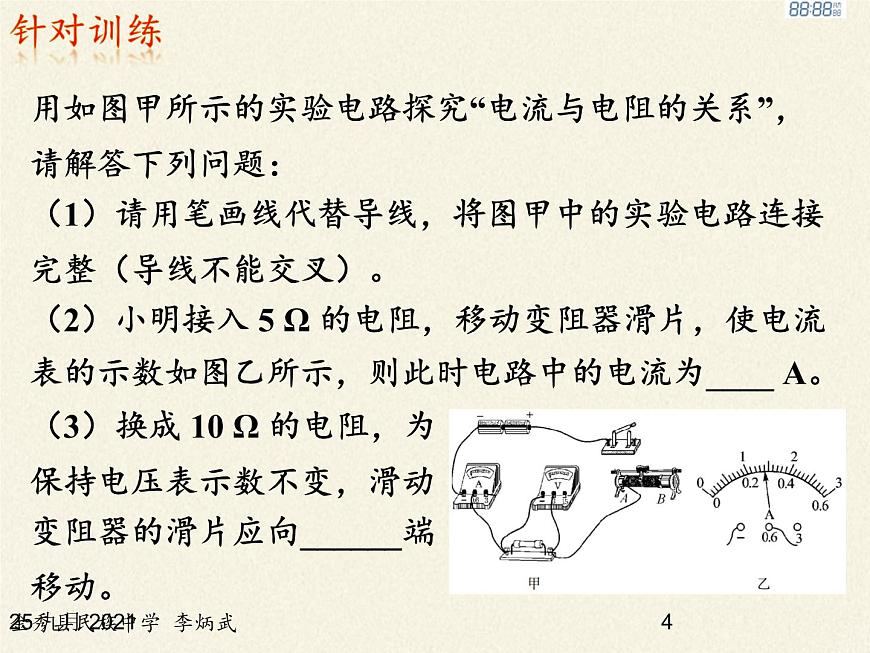 88:88
针对训练
用如图甲所示的实验电路探究“电流与电阻的关系”，
请解答下列问题：
（1）请用笔画线代替导线，将图甲中的实验电路连接
完整（导线不能交叉）。
（2）小明接入 5 Ω 的电阻，移动变阻器滑片，使电流
表的示数如图乙所示，则此时电路中的电流为____ A。
（3）换成 10 Ω 的电阻，为
保持电压表示数不变，滑动
变阻器的滑片应向______端
移动。
- +
A V
A B
甲
0 1 2 3
0 0.2 0.4 0.6
A
- 0.6 3
乙
民族中学 李炳武
4